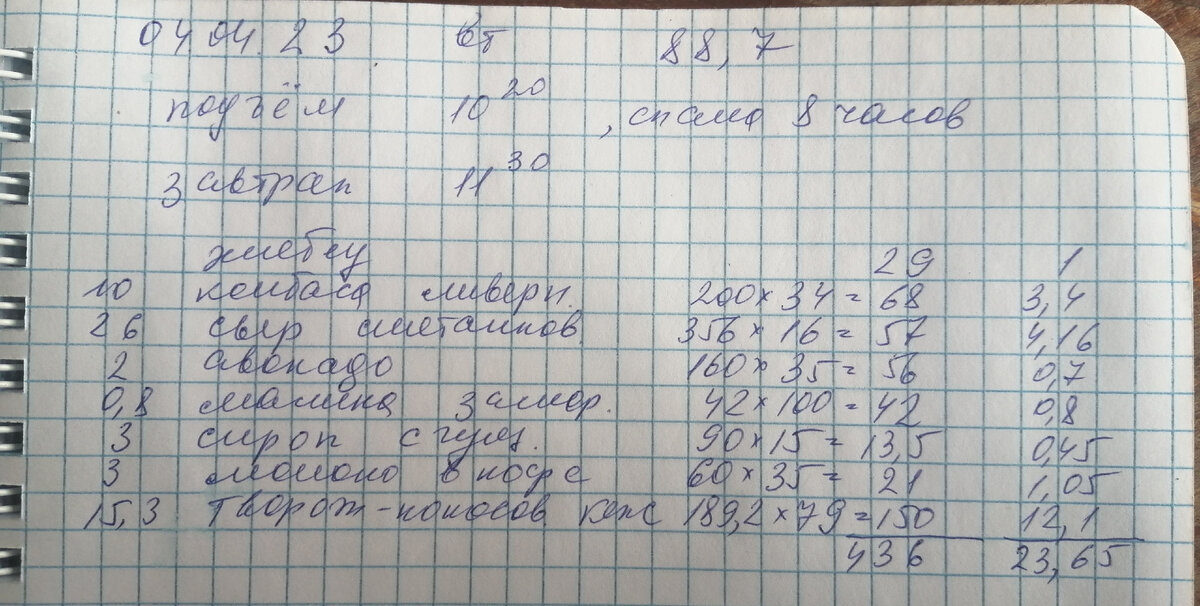 04 04.23 Вт 88,7
подъём 10 20, спала 8 часов
завтрак 11 30
хлебцы 29 1
10 колбаса ливерн. 200 × 34 = 68 3,4
26 сыр сметанков. 356 × 16 = 57 4,16
2 авокадо 160 × 35 = 56 0,7
0,8 малина замор. 42 × 100 = 42 0,8
3 сироп сгущ. 90 × 15 = 13,5 0,45
3 молоко в кофе 60 × 35 = 21 1,05
15,3 творож-кокосов. кекс 189,2 × 79 = 150 12,1
436 23,65